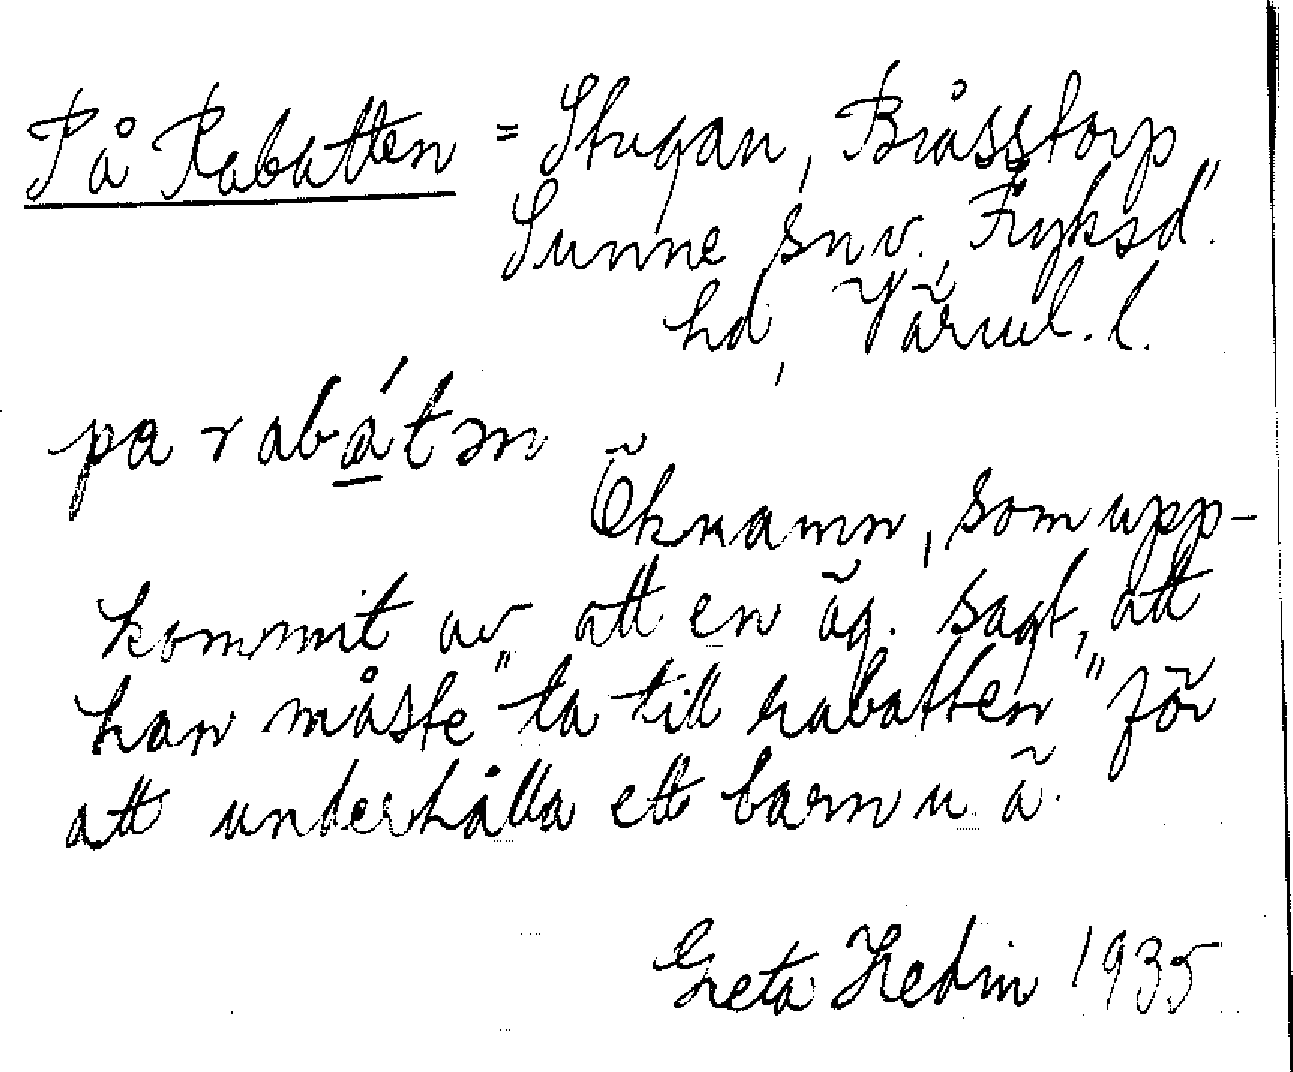 På Rabatten = Stugan, Bråsstorp
Sunne snv., Fryksd.
hd, Värml. l.
pa rabátən
Öknamn, som upp-
kommit av att en äg. sagt, att
han måste "ta till rabatten" för
att underhålla ett barn u ä.
Greta Hedin 1935